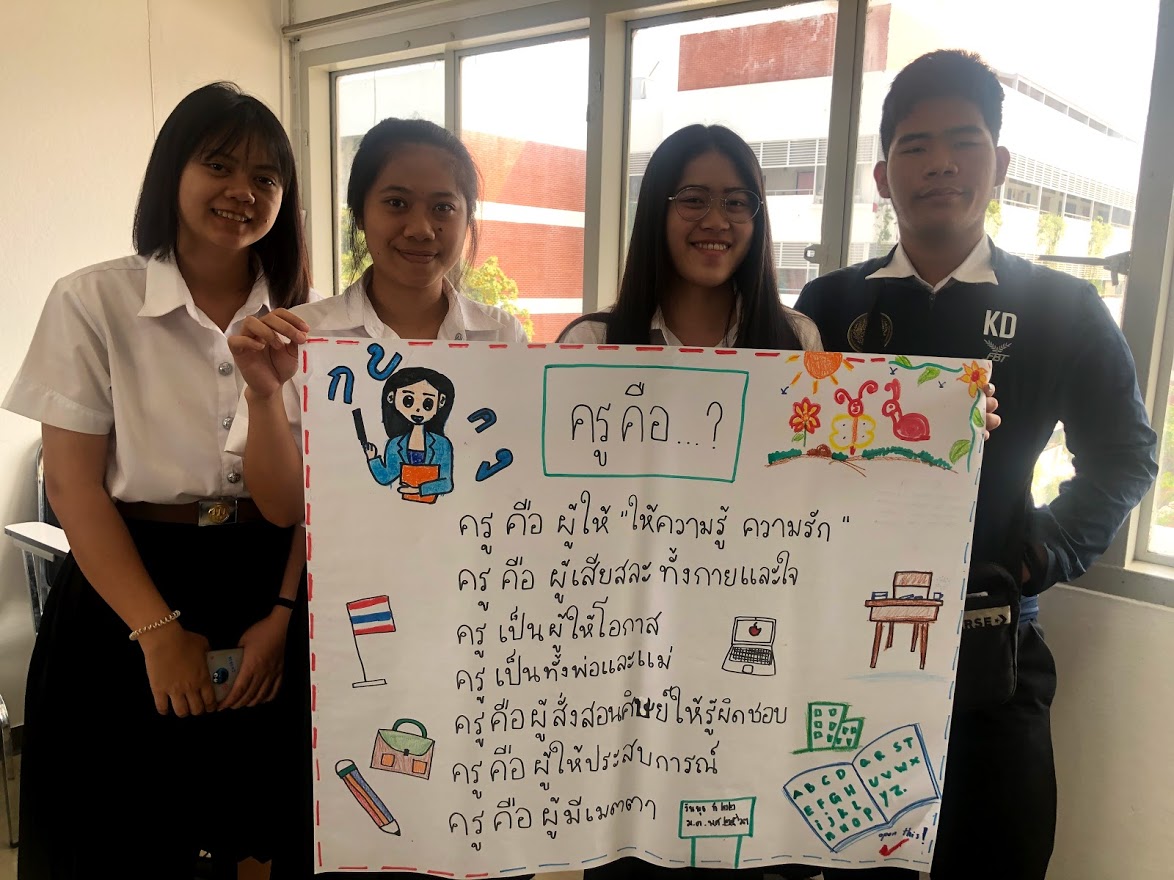 ก
ครู คือ...?
ครู คือ ผู้ให้ "ให้ความรู้ ความรัก"
ครู คือ ผู้เสียสละ ทั้งกายและใจ
ครู เป็น ผู้ให้โอกาส
ครู เป็นทั้งพ่อและแม่
ครู คือ ผู้สั่งสอนศิษย์ให้รู้ผิดชอบ
ครู คือ ผู้ให้ประสบการณ์
ครู คือ ผู้มีเมตตา
วันพุธ ที่ ๒๒
ม.ค. พศ.๒๕๖๓
A B C D
E F G H
i j k L
M N O P
Q R S T
U V W X
Y Z.
open this!
KD
FBT
RSE